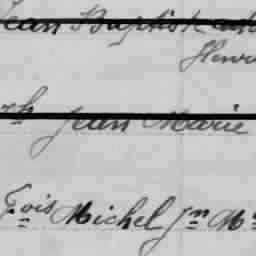 Jean Baptiste
Henri
Jean Marie
F.ois Michel Jn M